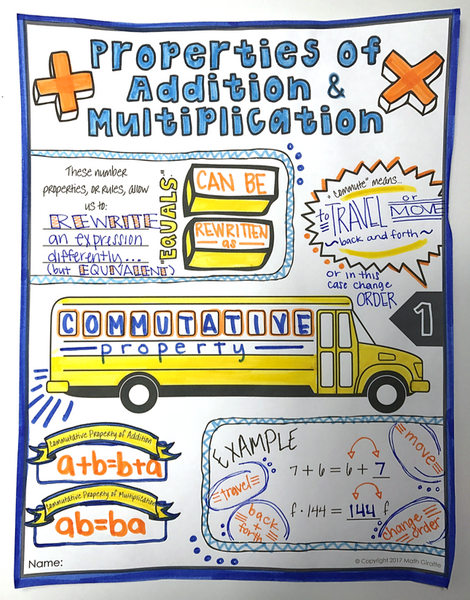 Properties of
Addition &
Multiplication
These number
properties, or rules, allow
us to:
REWRITE
an expression
differently...
(but EQUIVALENT)
"EQUALS."
CAN BE
REWRITTEN
as
"commute" means...
to TRAVEL or MOVE
~back and forth~
or in this
case change
ORDER
1
COMMUTATIVE
property
Commutative Property of Addition
a+b=b+a
Commutative Property of Multiplication
ab=ba
EXAMPLE
7 + 6 = 6 + 7
f · 144 = 144 f
move
travel
back
+
forth
change
order
Name:
© Copyright 2017 Math Giraffe